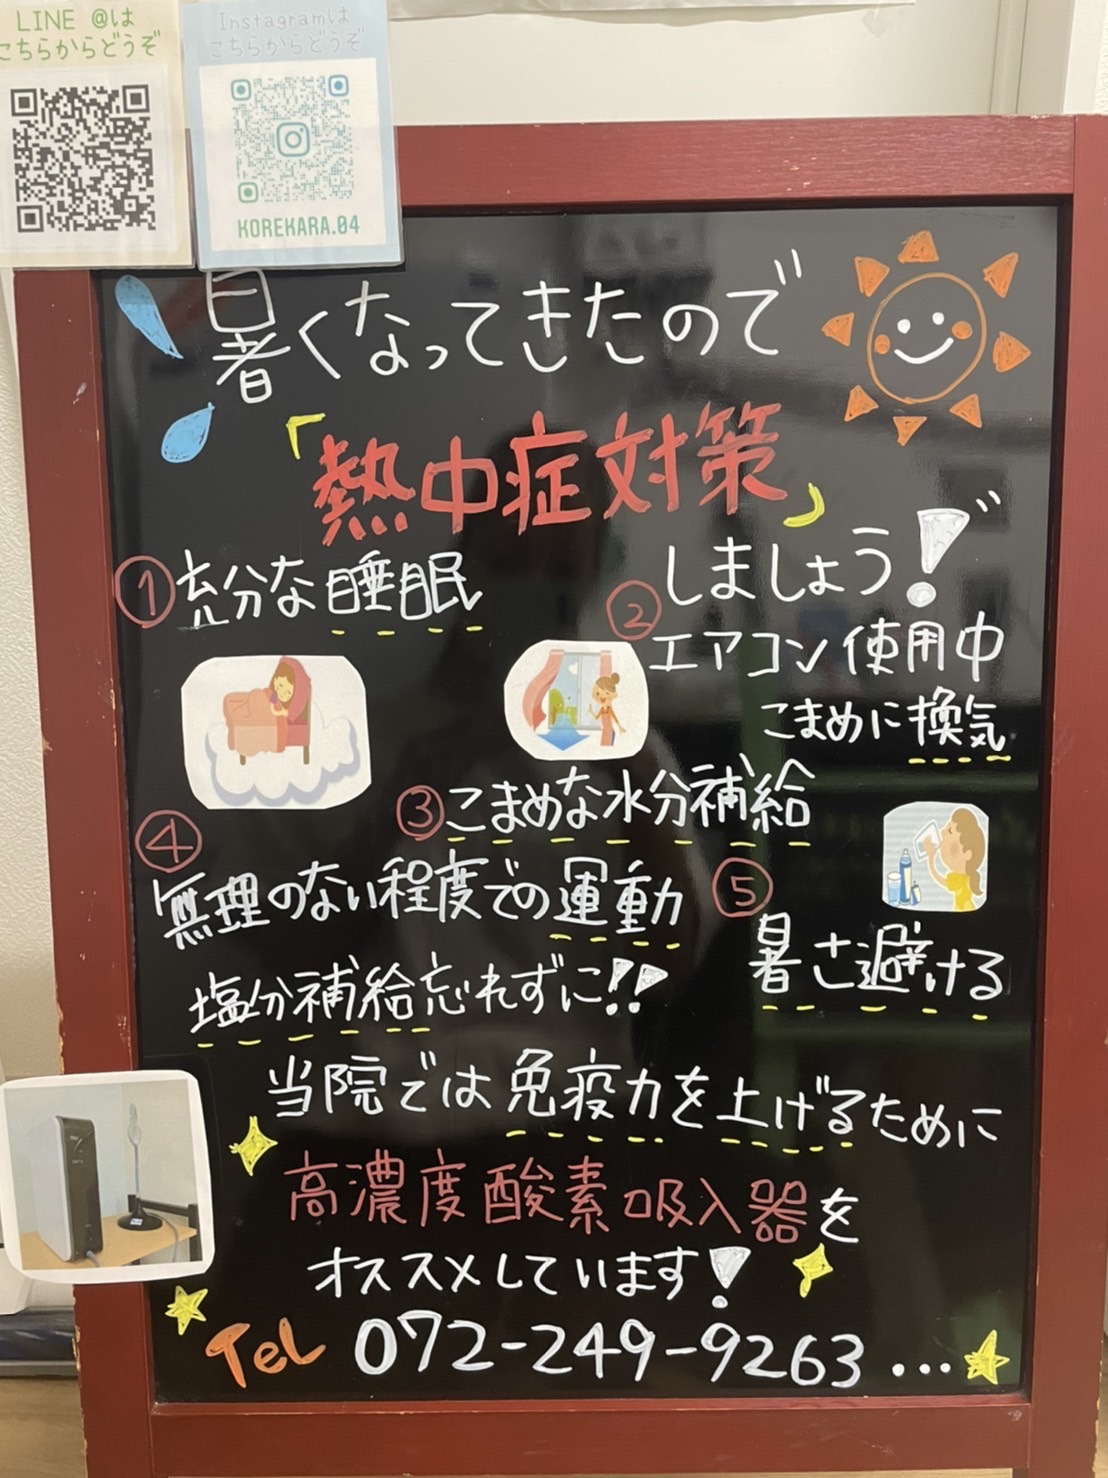 LINE @は
こちらからどうぞ
Instagramは
こちらからどうぞ
KOREKARA.04
暑くなってきたので
「熱中症対策」
しましょう!
①充分な睡眠
②エアコン使用中
こまめに換気
③こまめな水分補給
④無理のない程度での運動
塩分補給忘れずに!!
⑤暑さ避ける
当院では免疫力を上げるために
高濃度酸素吸入器を
オススメしています!
TEL 072-249-9263...